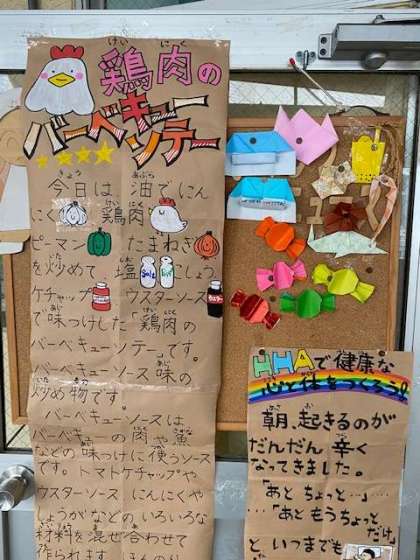 鶏肉の
けい にく
バーベキュー
ソテー
きょう あぶら
今日は 油でにん
にく 鶏肉
ピーマン たまねぎ
を炒めて、塩 こしょう
Salt
ケチャップ ウスターソース
で味つけした「鶏肉の
バーベキューソテー」です。
バーベキューソース味の
炒め物です。
バーベキューソースは
バーベキューの肉や魚
などの味つけに使うソース
です。トマトケチャップや
ウスターソース にんにくや
しょうがなどのいろいろな
材料を混ぜ合わせて
作られます。
HHAで健康な
心と体をつくろう!
朝、起きるのが
だんだん辛く
なってきました。
「あと ちょっと…」…
…「あと もうちょっと
だけ」
と いつまでも